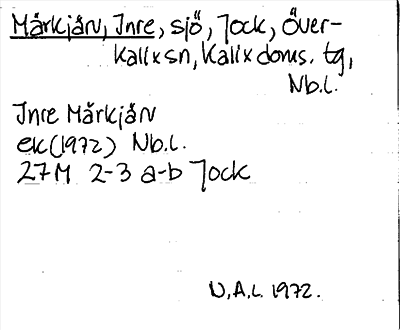 Mårkjärv, Inre, sjö, Jock, Över-
kalix sn, Kalix doms. tg,
Nb.l.
Inre Mårkjärv
ek(1972) Nb.l.
27M 2-3 a-b Jock
N.A.L. 1972.